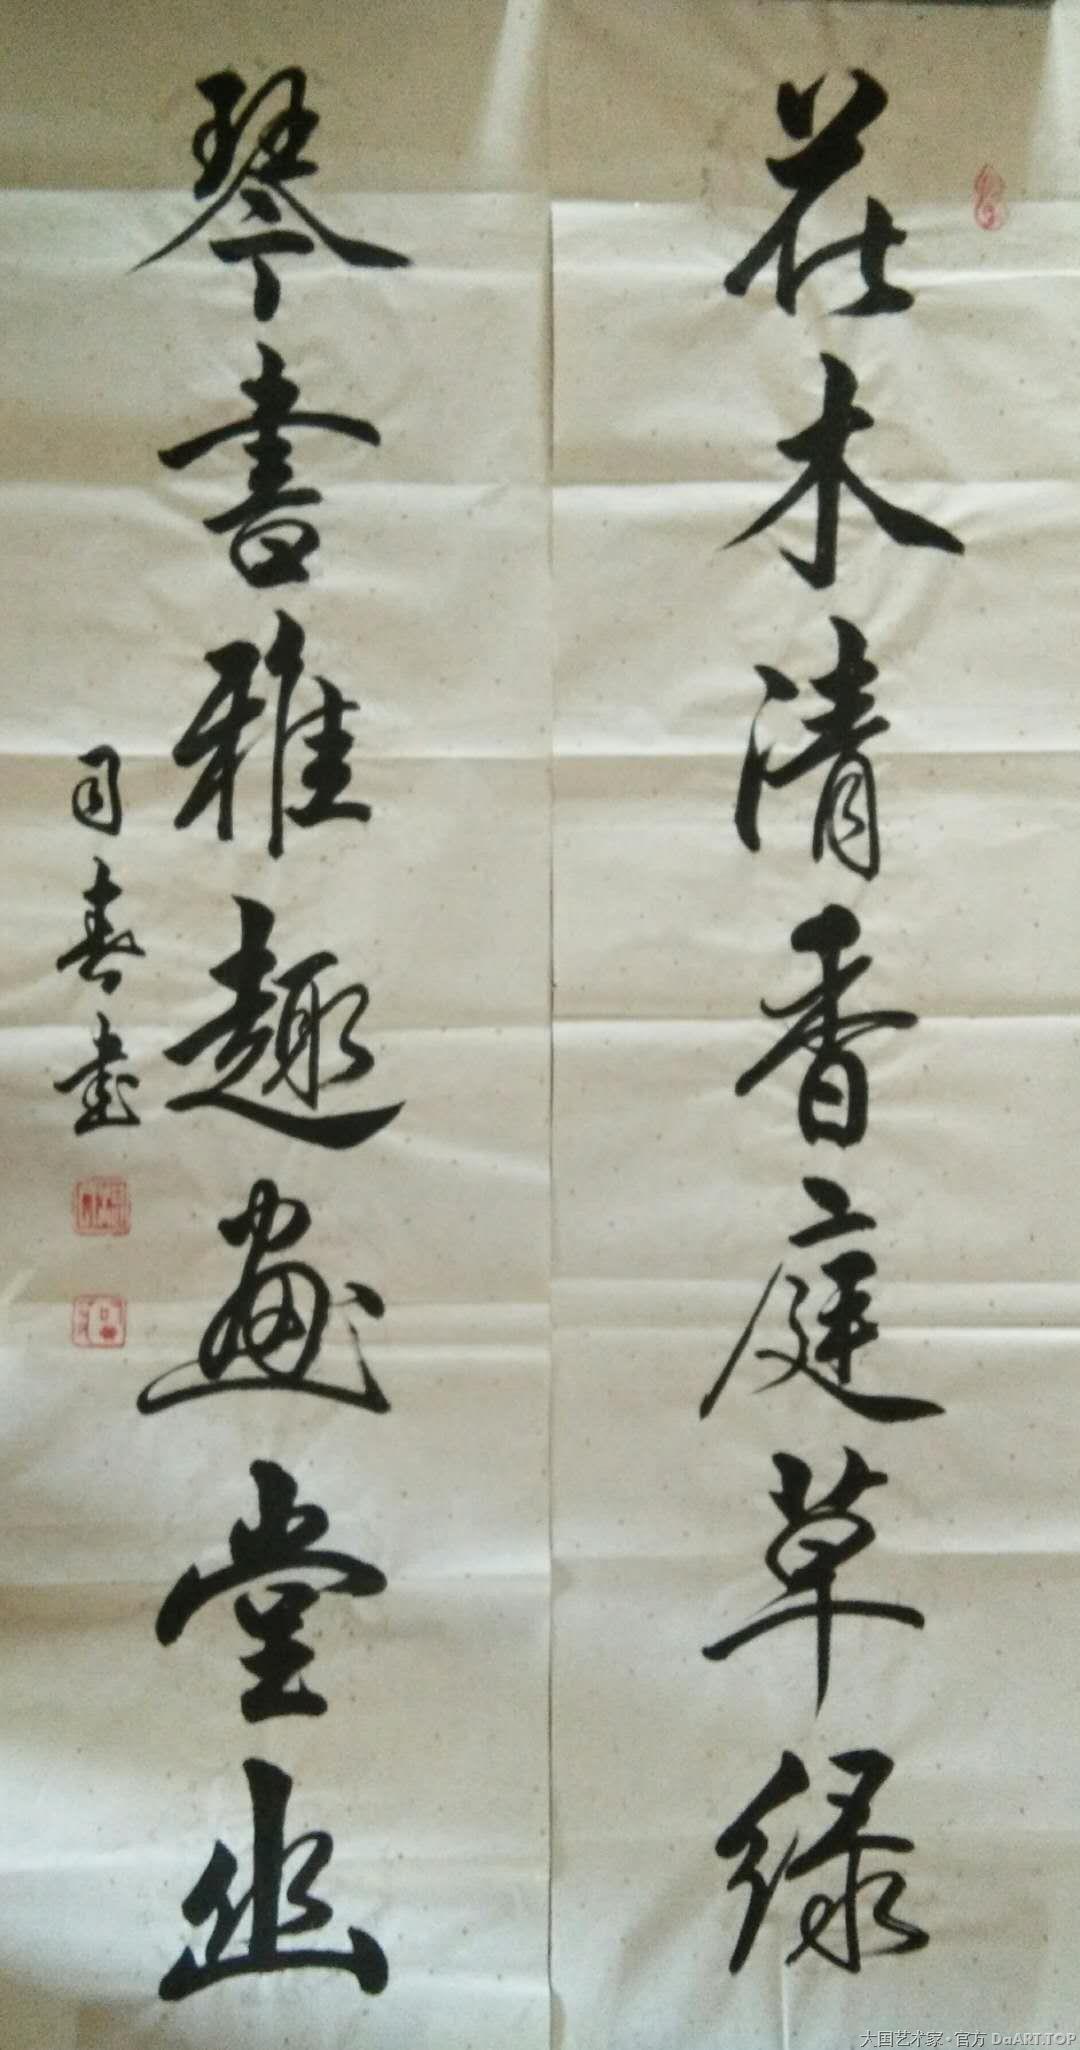 花木清香庭草绿
琴書雅趣畫堂幽
司春書
大国艺术家·官方 DaART.TOP